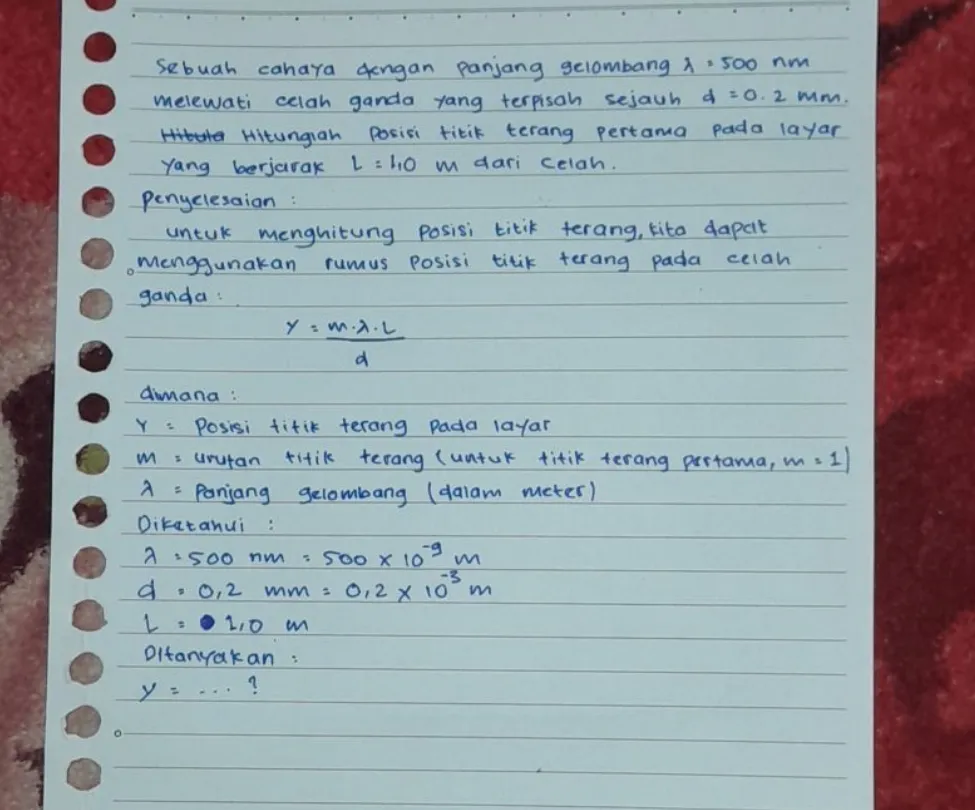 Sebuah cahaya dengan panjang gelombang λ = 500 nm
melewati celah ganda yang terpisah sejauh d = 0.2 mm.
Hitula Hitunglah posisi titik terang pertama pada layar
yang berjarak L = 1,0 m dari celah.
Penyelesaian :
untuk menghitung posisi titik terang, kita dapat
menggunakan rumus posisi titik terang pada celah
ganda :
Y = m.λ.L
d
dimana :
Y = Posisi titik terang pada layar
m = urutan titik terang (untuk titik terang pertama, m = 1)
λ = Panjang gelombang (dalam meter)
Diketahui :
λ = 500 nm = 500 × 10⁻⁹ m
d = 0,2 mm = 0,2 × 10⁻³ m
L = 1,0 m
Ditanyakan :
y = ... ?